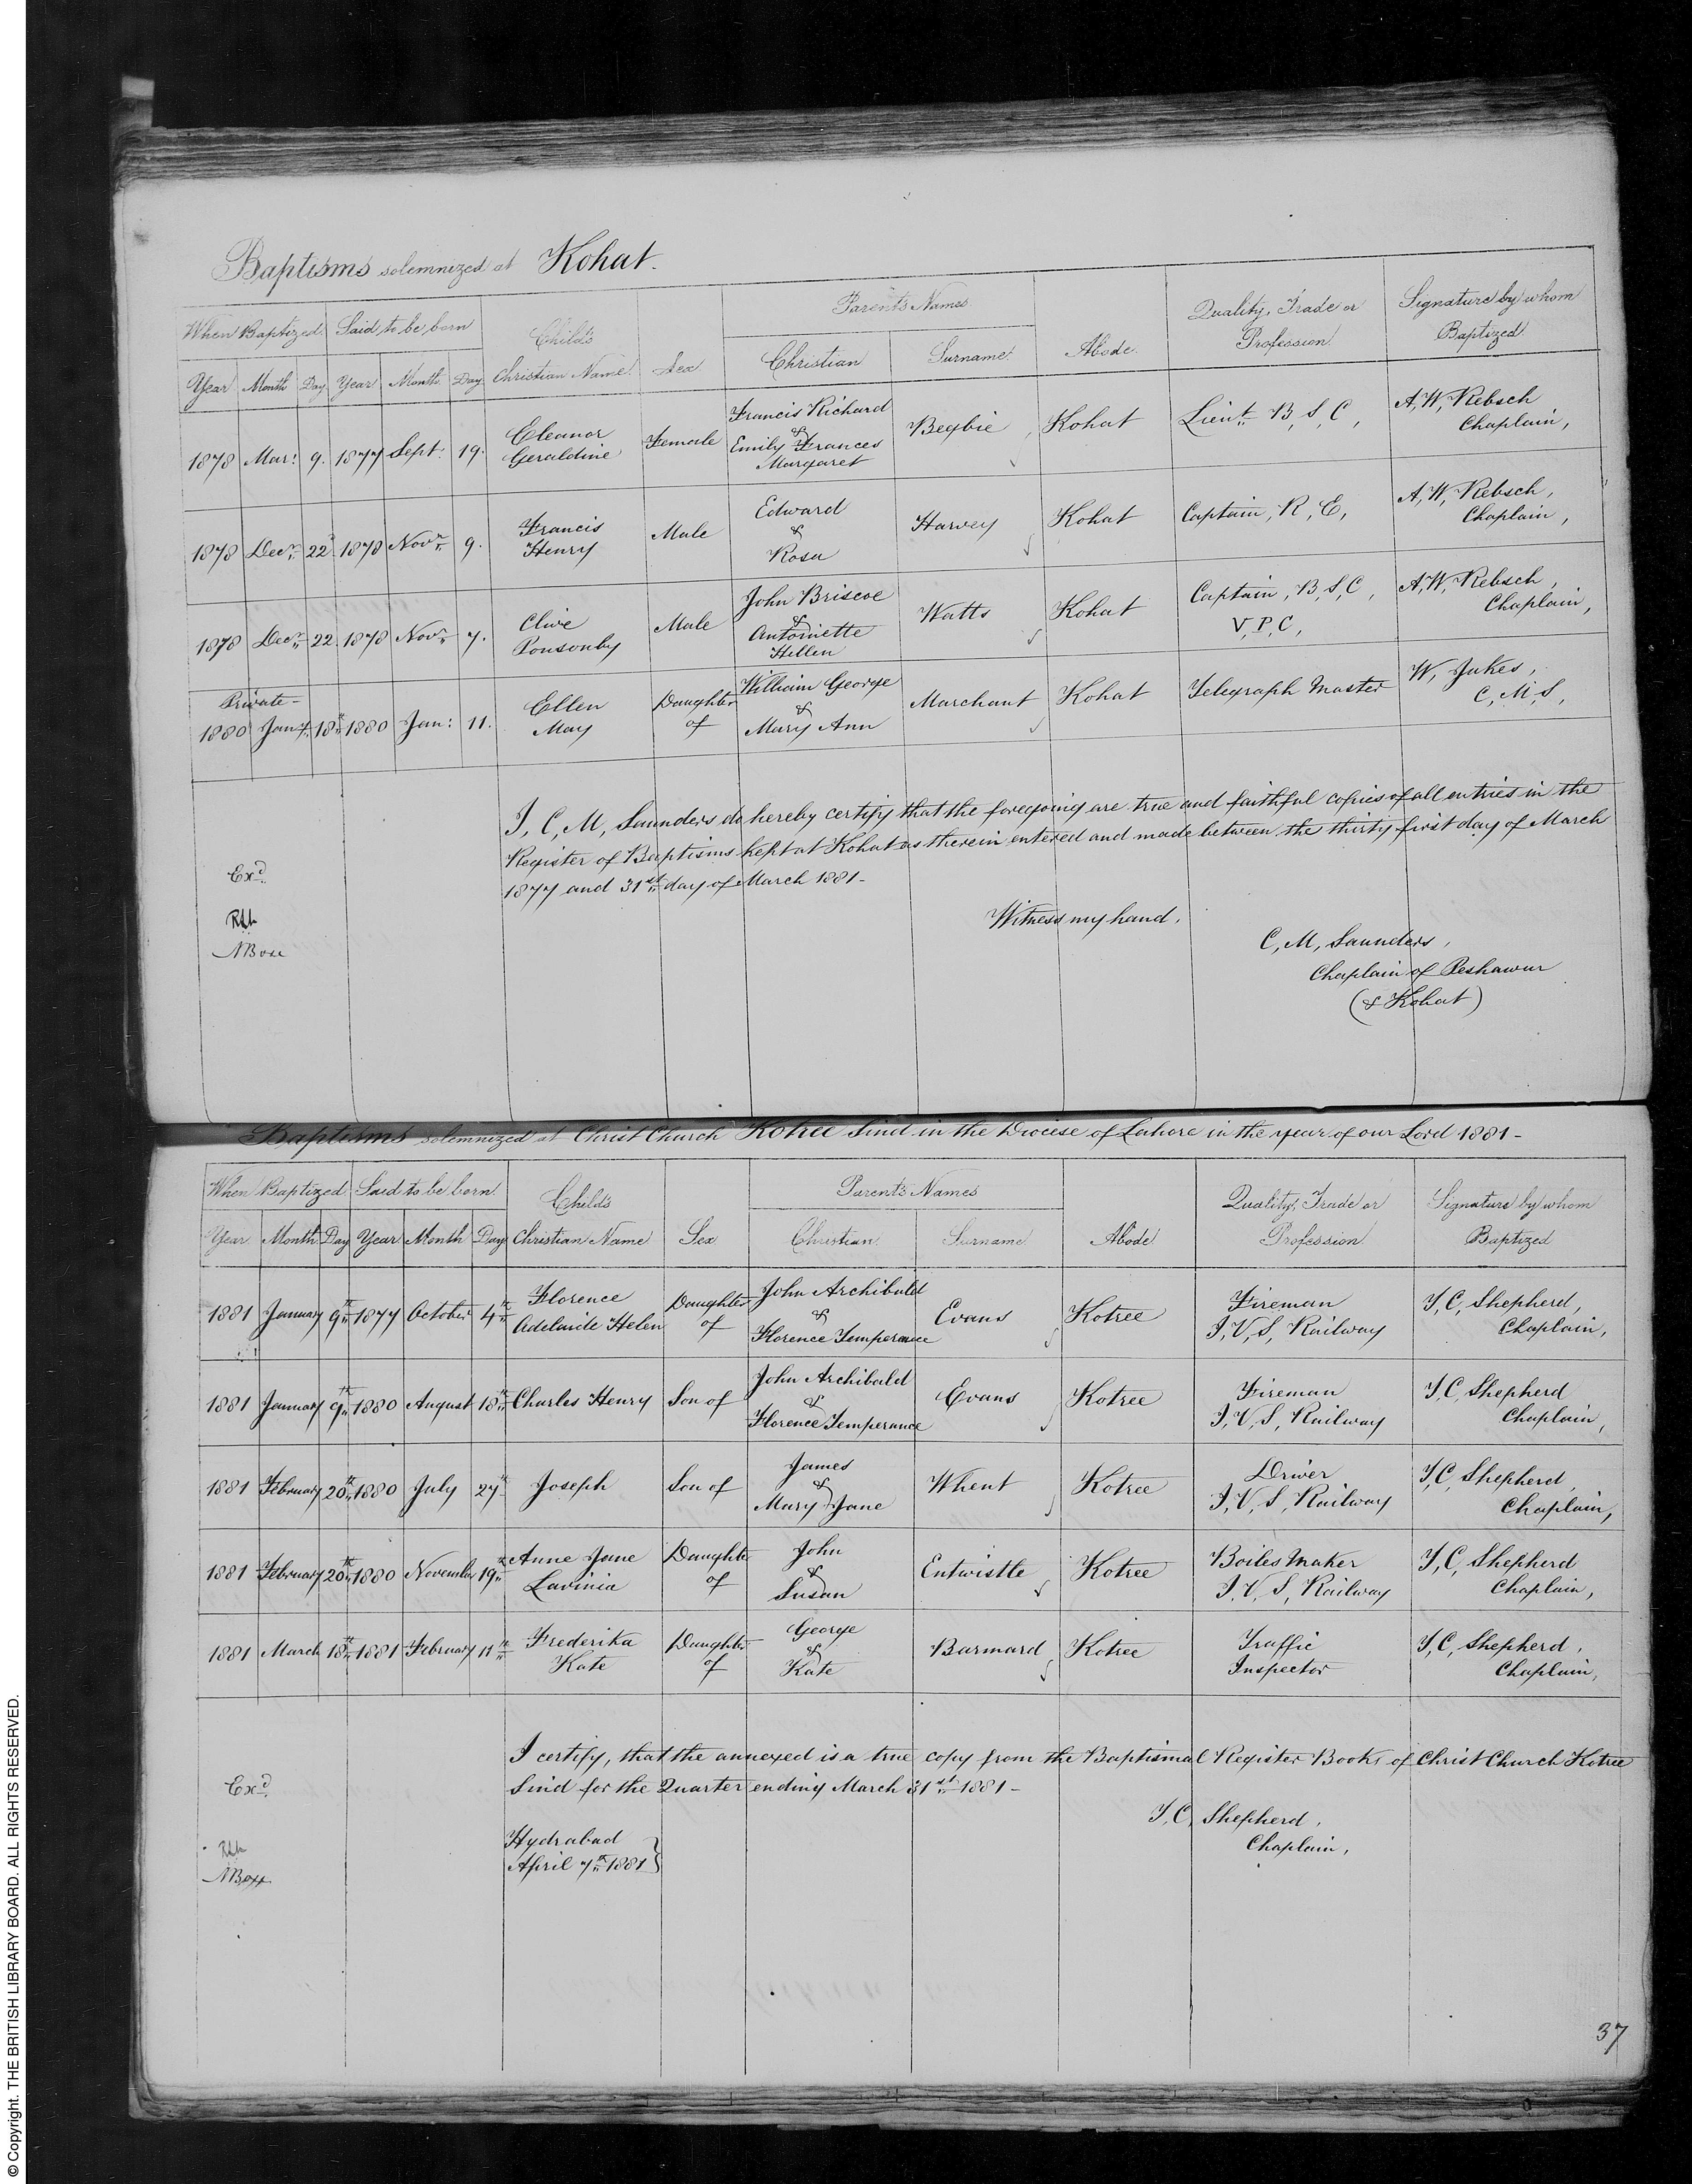 Baptisms solemnized at Kohat.
When Baptized Said to be born Child's Christian Name Sex Parent's Names Abode Quality, Trade or Profession Signature by whom Baptized
Year Month Day Year Month Day Christian Surname
1878 Mar: 9. 1877 Sept: 19. Eleanor Geraldine Female Francis Richard & Emily Frances Margaret Begbie Kohat Lieut. B, S, C, A, W, Rebsch Chaplain,
1878 Decr. 22 1878 Novr. 9. Francis Henry Male Edward & Rosa Harvey Kohat Captain, R, E, A, W, Rebsch, Chaplain,
1878 Decr. 22 1878 Novr. 7. Clive Ponsonby Male John Briscoe & Antoinette Hellen Watts Kohat Captain, B, S, C, V, P, C, A, W, Rebsch, Chaplain,
Private-
1880 Jany. 18th 1880 Jan: 11. Ellen May Daughter of William George & Mary Ann Marchant Kohat Telegraph Master W, Jukes, C, M, S,
I, C, M, Saunders do hereby certify that the foregoing are true and faithful copies of all entries in the
Register of Baptisms kept at Kohat as therein entered and made between the thirty first day of March
1877 and 31st day of March 1881-
Exd.
Witness my hand,
C, M, Saunders,
Chaplain of Peshawur
(& Kohat)
Baptisms solemnized at Christ Church Kotree Sind in the Diocise of Lahore in the year of our Lord 1881-
When Baptized Said to be born Child's Christian Name Sex Parent's Names Abode Quality, Trade or Profession Signature by whom Baptized
Year Month Day Year Month Day Christian Surname
1881 January 9th 1877 October 4th Florence Adelaide Helen Daughter of John Archibald & Florence Temperance Evans Kotree Fireman I, V, S, Railway T, C, Shepherd, Chaplain,
1881 January 9th 1880 August 18th Charles Henry Son of John Archibald & Florence Temperance Evans Kotree Fireman I, V, S, Railway T, C, Shepherd Chaplain,
1881 February 20th 1880 July 27th Joseph Son of James & Mary Jane Whent Kotree Driver I, V, S, Railway T, C, Shepherd, Chaplain,
1881 February 20th 1880 November 19th Anne Jane Lavinia Daughter of John & Susan Entwistle Kotree Boiler Maker I, V, S, Railway T, C, Shepherd Chaplain,
1881 March 18th 1881 February 11th Frederika Kate Daughter of George & Kate Barmard Kotree Traffic Inspector T, C, Shepherd, Chaplain,
I certify, that the annexed is a true copy from the Baptismal Register Books, of Christ Church Kotree
Sind for the Quarter ending March 31st 1881-
Exd.
T, C, Shepherd,
Chaplain,
Hydrabad
April 7th 1881
37
© Copyright. THE BRITISH LIBRARY BOARD. ALL RIGHTS RESERVED.